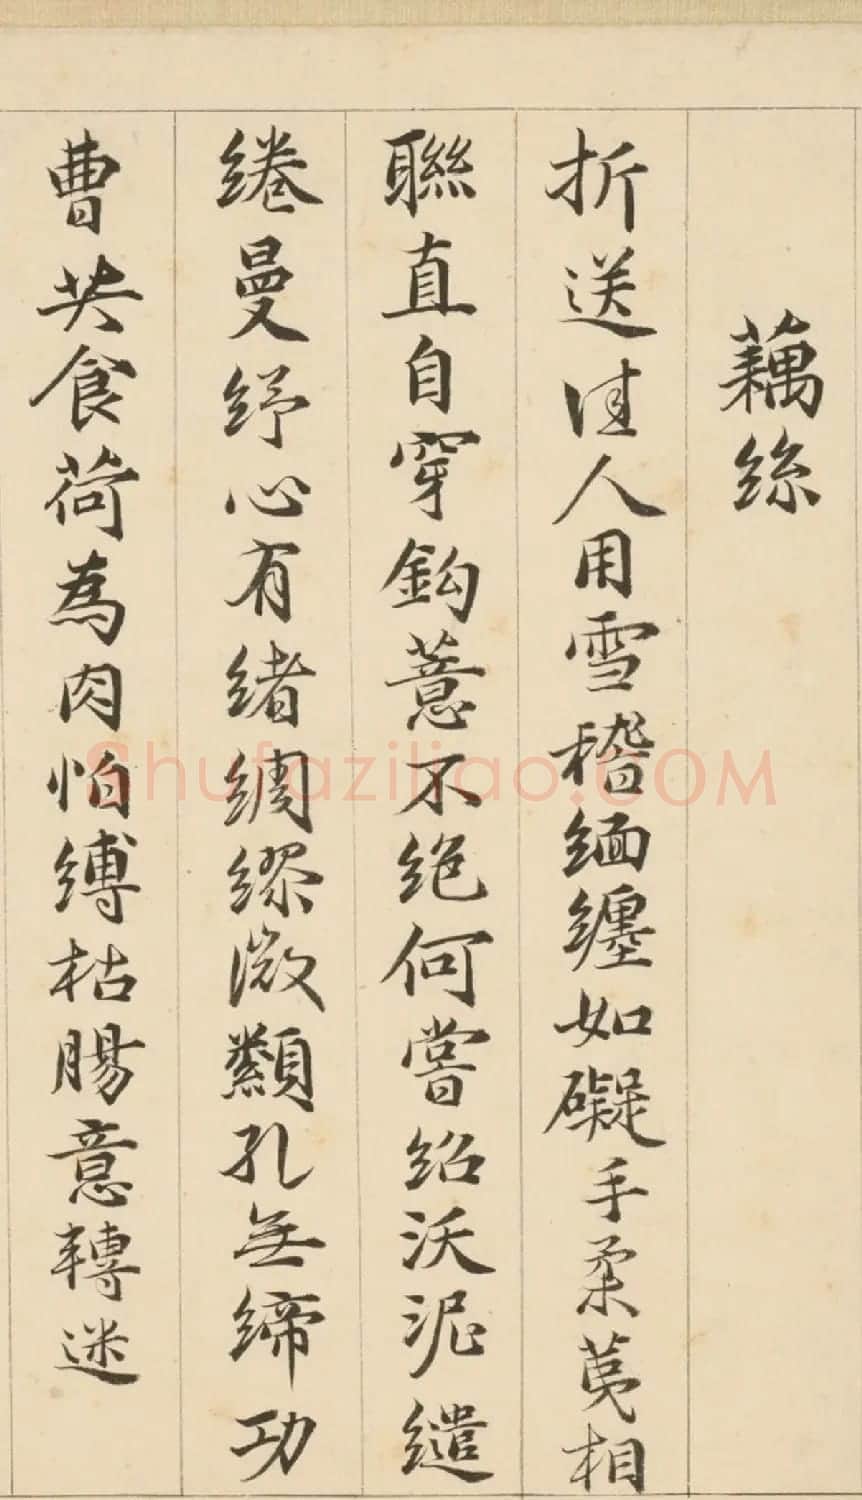 藕絲
折送佳人用雪稽緬纏如礙手柔荑相
聯直自穿鈎薏不絕何嘗紹沃泥繾
綣曼紓心有緒綢繆微纇孔無締功
曹共食荷為肉怕縛枯腸意轉迷
Shufaziliao.COM